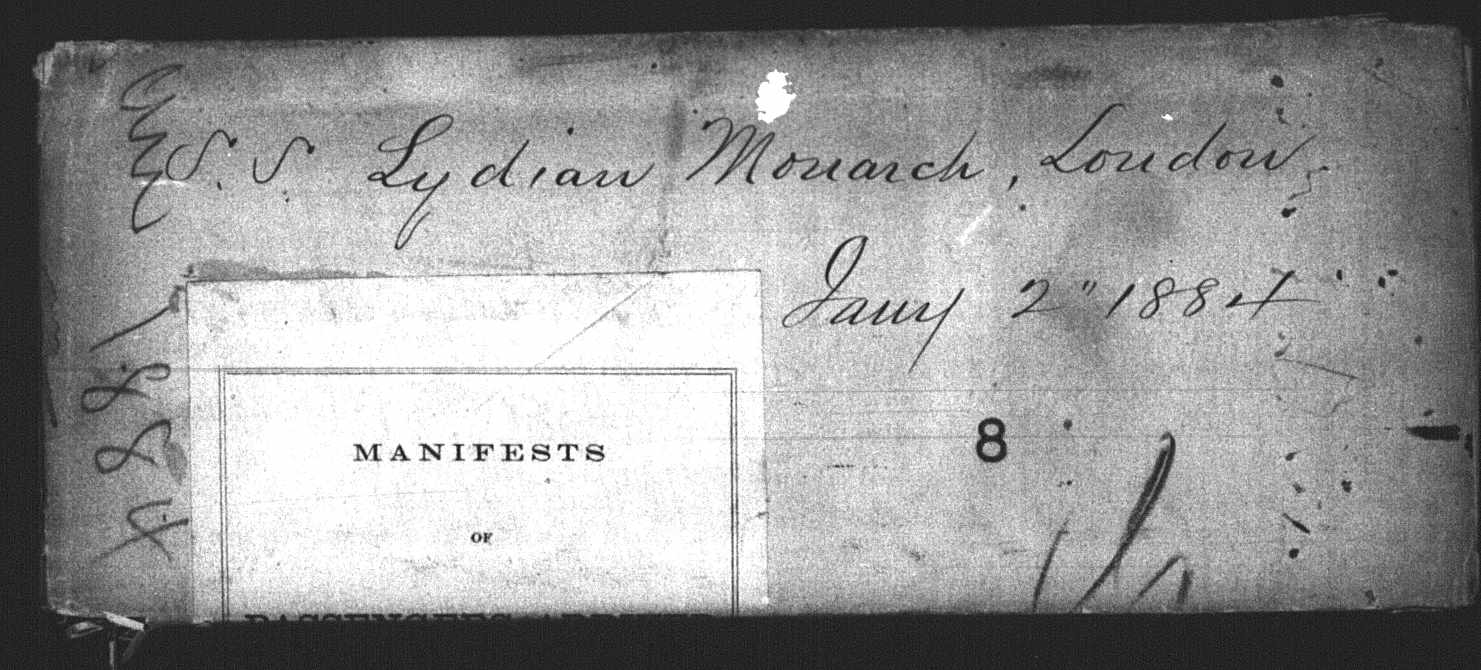 S.S Lydian Monarch, London
Jany 2" 1884
1884
8
MANIFESTS
OF
PASSENGERS